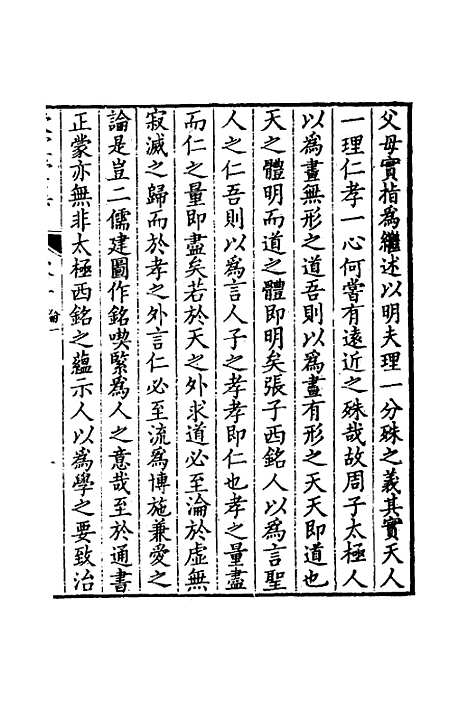 父母實指爲繼述以明夫理一分殊之義其實天人
一理仁孝一心何嘗有遠近之殊哉故周子太極人
以爲畫無形之道吾則以爲畫有形之天天即道也
天之體明而道之體即明矣張子西銘人以爲言聖
人之仁吾則以爲言人子之孝孝即仁也孝之量盡
而仁之量即盡矣若於天之外求道必至淪於虛無
寂滅之歸而於孝之外言仁必至流爲博施兼愛之
論是豈二儒建圖作銘喫緊爲人之意哉至於通書
正蒙亦無非太極西銘之蘊示人以爲學之要致治